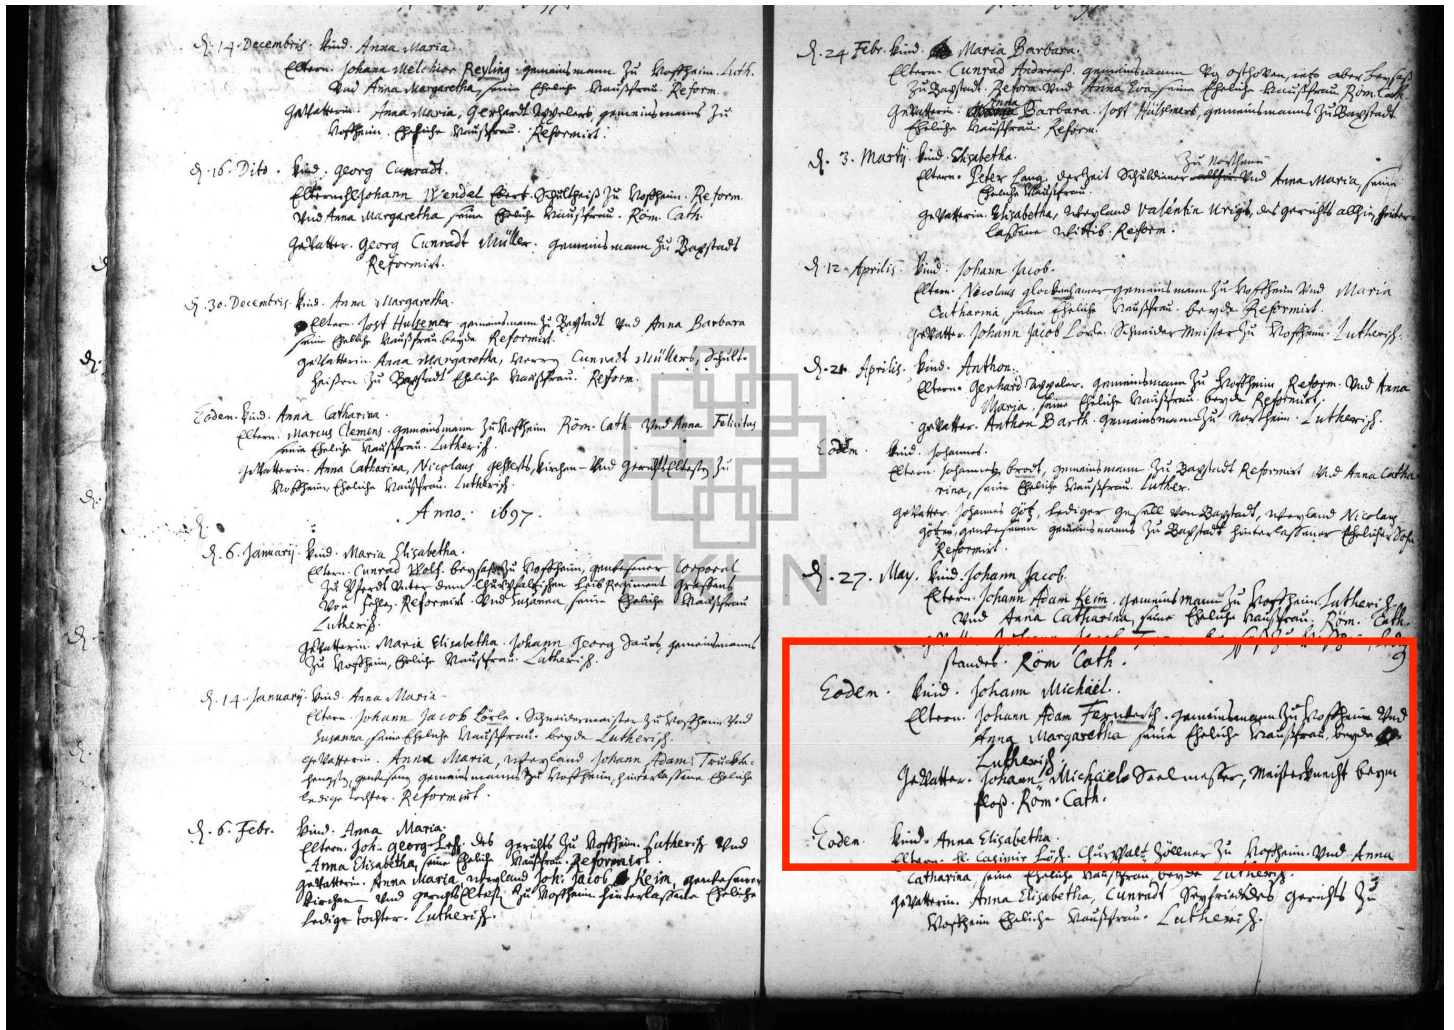 d. 14. Decembris. Kind. Anna Maria.
Eltern. Johann Melchior Reyling. gemeinsmann zu Hoffheim. Luth.
Und Anna Margaretha, seine Eheliche Haußfrau. Reform.
Gevatterin. Anna Maria, Gerhardt Appelers, gemeinsmans zu
Hoffheim. Eheliche Haußfrau. Reformirt.
d. 16. Dito. Kind. Georg Cunradt.
Johann Wendel Schultheiß zu Hoffheim. Reform.
Und Anna Margaretha seine Eheliche Haußfrau. Röm. Cath.
Gevatter. Georg Cunradt Müller. gemeinsmann zu
Reformirt.
d. 30. Decembris. Kind. Anna Margaretha.
Eltern. Jost Hulsemer. gemeinsmann zu Und Anna Barbara
seine Eheliche Haußfrau beyde Reformirt.
Gevatterin. Anna Margaretha, Herrn Cunradt Müllers, Schult-
heißen zu Eheliche Haußfrau. Reform.
Eodem. Kind. Anna Catharina.
Eltern. Marcus Clemens. gemeinsmann zu Hoffheim Röm. Cath. Und Anna Felicitas
seine Eheliche Haußfrau. Lutherisch.
Gevatterin. Anna Catharina, Nicolaus Kirchen- Und Gerichts Eltesten zu
Hoffheim, Eheliche Haußfrau. Lutherisch.
Anno. 1697.
d. 6. January. Kind. Maria Elisabetha.
Eltern. Cunrad Wolf. beysaß zu Hoffheim, gewesener Corporal
zu Pferdt Unter dem Churpfaltzischen Leib Regiment
Von Reformirt. Und Susanna seine Eheliche Haußfrau
Lutherisch.
Gevatterin. Maria Elisabetha. Johann Georg Saurs gemeinsmanns
zu Hoffheim, Eheliche Haußfrau. Lutherisch.
d. 14. January. Kind. Anna Maria.
Eltern. Johann Jacob Lörle. Schneidermeister zu Hoffheim Und
Susanna seine Eheliche Haußfrau. beyde Lutherisch.
Gevatterin. Anna Maria, Weyland Johann Adam
gemeinsmanns zu Hoffheim, hinterlassene Eheliche
ledige tochter. Reformirt.
d. 6. Febr. Kind. Anna Maria.
Eltern. Joh. Georg des Gerichts zu Hoffheim. Lutherisch Und
Anna Elisabetha, seine Eheliche Haußfrau. Reformirt.
Gevatterin. Anna Maria, Weyland Joh. Jacob Keim, gewesener
Kirchen- Und Gerichts Eltesten zu Hoffheim hinterlassene Eheliche
ledige tochter. Lutherisch.
d. 24 Febr. Kind. Maria Barbara.
Eltern. Cunrad Andreaß. gemeinsmann aber beysaß
zu Reform. Und Anna Eva, seine Eheliche Haußfrau. Röm. Cath.
Gevatterin. Anna Barbara. Jost Hulsemers, gemeinsmans zu
Eheliche Haußfrau. Reform.
d. 3. Martij. Kind. Elisabetha.
zu Northeim
Eltern. Peter Lang. derzeit Schuldiener Und Anna Maria, seine
Eheliche Haußfrau.
Gevatterin. Elisabetha, Weyland Valentin des gerichts allhie, hinter-
lassene Wittib. Reform.
d. 12. Aprilis. Kind. Johann Jacob.
Eltern. Nicolaus gemeinsmann zu Hoffheim Und Maria
Catharina seine Eheliche Haußfrau. beyde Reformirt.
Gevatter. Johann Jacob Lörle. Schneider Meister zu Hoffheim. Lutherisch.
d. 21 Aprilis. Kind. Anthon.
Eltern. Gerhard Appeler. gemeinsmann zu Hoffheim Reform. Und Anna
Maria seine Eheliche Haußfrau. beyde Reformirt.
Gevatter. Anthon Barth. gemeinsmann zu Northeim. Lutherisch.
Eodem. Kind. Johannes.
Eltern. Johannes brodt, gemeinsmann zu Reformirt Und Anna Catha-
rina, seine Eheliche Haußfrau. Luther.
Gevatter. Johannes Götz, lediger gesell von Weyland Nicolaus
Götzen, gewesenen gemeinsmanns zu hinterlassener Ehelicher Sohn
Reformirt.
d. 27. May. Kind. Johann Jacob.
Eltern. Johann Adam Keim. gemeinsmann zu Hoffheim Lutherisch
Und Anna Catharina, seine Eheliche Haußfrau. Röm. Cath.
standes. Röm Cath.
Eodem. Kind. Johann Michael.
Eltern. Johann Adam gemeinsmann zu Hoffheim Und
Anna Margaretha seine Eheliche Haußfrau, beyde
Lutherisch.
Gevatter. Johann Michael Seelmesser, Meisterknecht beym
floß. Röm. Cath.
Eodem. Kind. Anna Elisabetha.
Eltern. H. Casimir Churpfalz. Zöllner zu Hoffheim. Und Anna
Catharina, seine Eheliche Haußfrau beyde Lutherisch.
Gevatterin. Anna Elisabetha, Cunradt des gerichts zu
Hoffheim Eheliche Haußfrau. Lutherisch.
EKHN